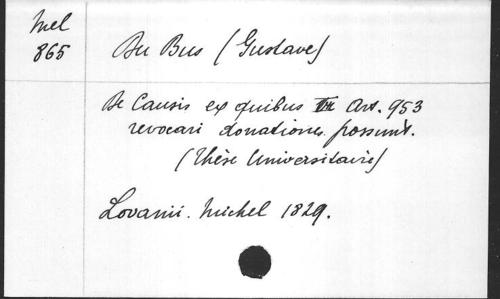 Mel
865
Du Bus (Gustave)
De Causis ex quibus Art. 953
revocari donationes possunt.
(Thèse Universitaire)
Lovanii. Michel 1829.